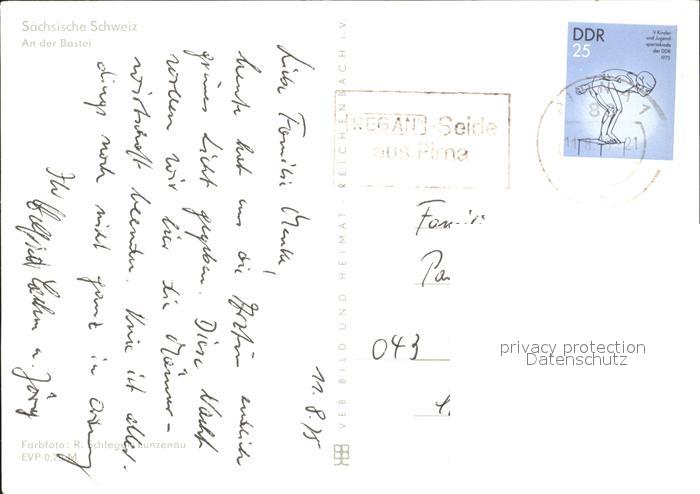 Sächsische Schweiz
An der Bastei
11.8.75
Liebe Familie Menke!
heute hat uns die Ärztin endlich
grünes Licht gegeben. Diese Nacht
wollen wir hier die Männer-
wirtschaft beenden. Knie ist aller-
dings noch nicht ganz in Ordnung
Ihr u. Jörg
Farbfoto: R. Schlegel, Lunzenau
EVP 0,20 M
VEB BILD UND HEIMAT · REICHENBACH i.V.
REGANO-Seide
aus Pirna
DDR
25
V Kinder
und Jugend-
spartakiade
der DDR
1975
Fami
043
privacy protection
Datenschutz